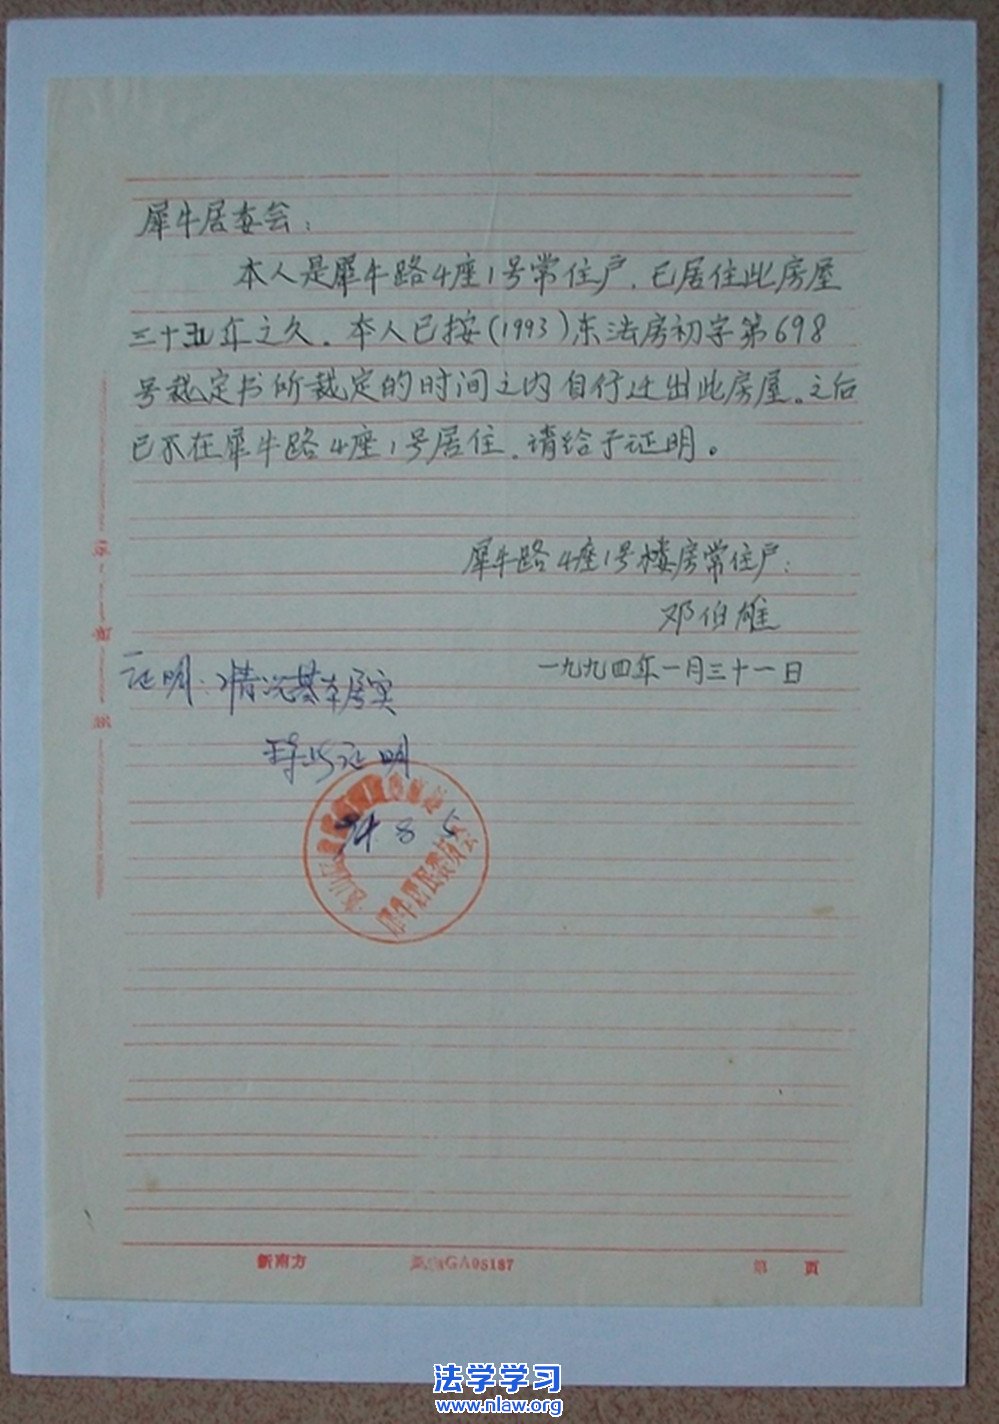 犀牛居委会：
本人是犀牛路4座1号常住户，已居住此房屋
三十五年之久。本人已按(1993)东法房初字第698
号裁定书所裁定的时间之内自行迁出此房屋。之后
已不在犀牛路4座1号居住，请给予证明。
犀牛路4座1号楼房常住户：
邓伯雄
一九九四年一月三十一日
证明：情况基本属实
特此证明
94.8.5
犀牛居民委员会
新南方
GA05187
第 页
法学学习
www.nlaw.org